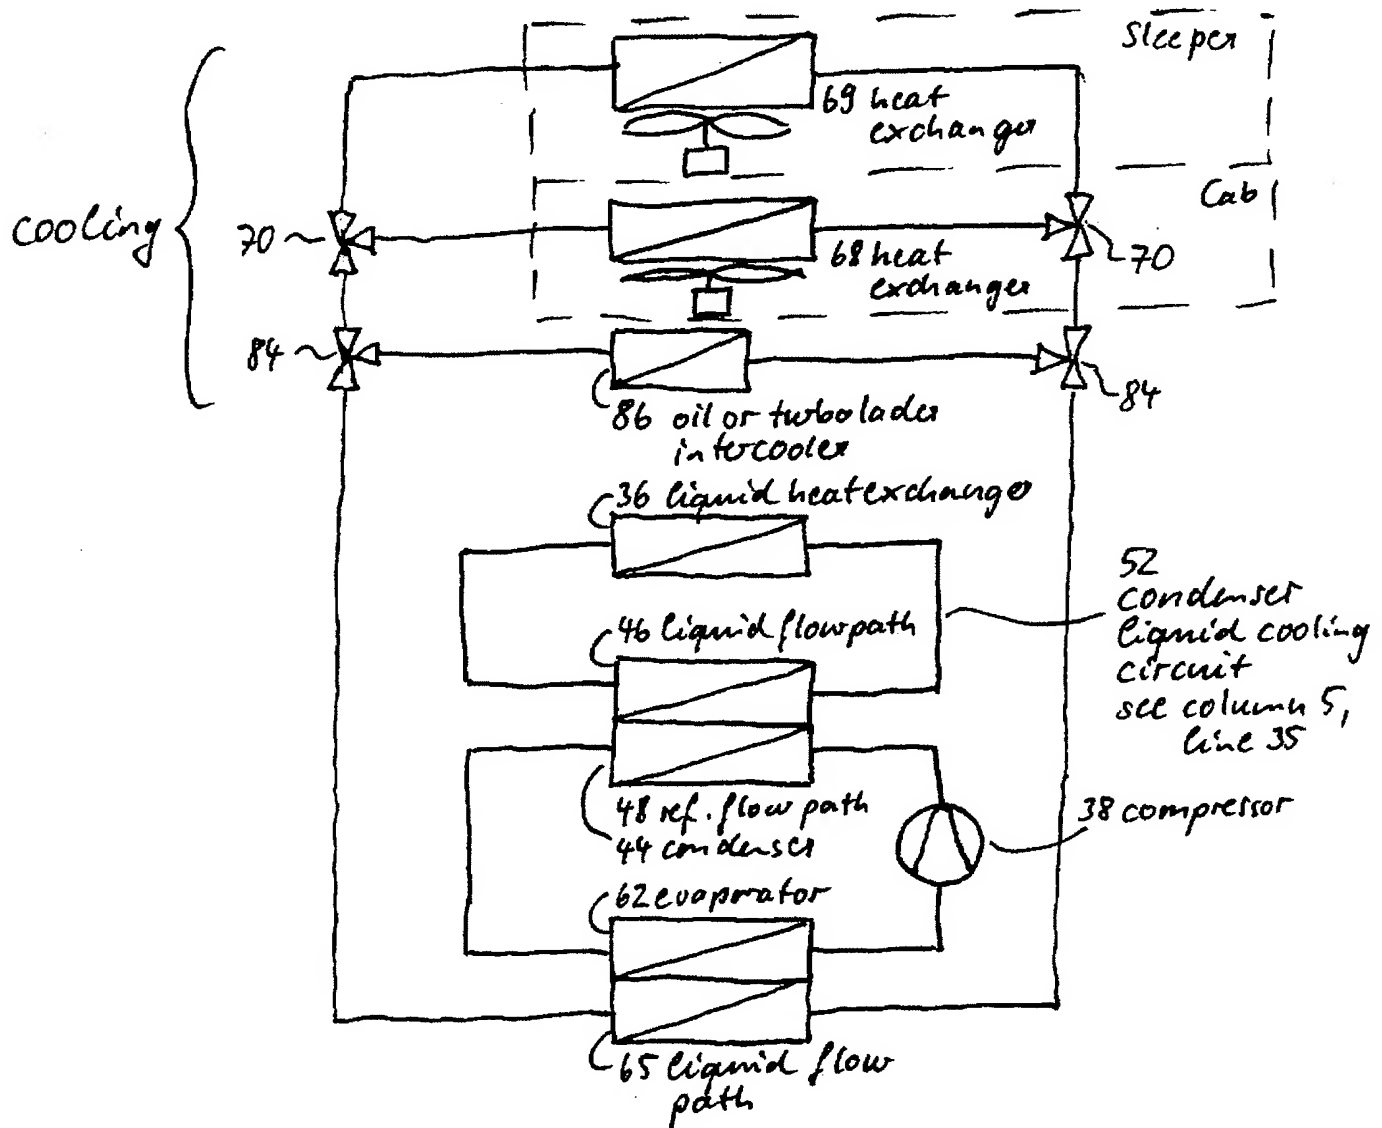 Sleeper
69 heat
exchanger
Cab
cooling
70
68 heat
exchanger
70
84
84
86 oil or turbolader
intercooler
36 liquid heat exchanger
52
condenser
liquid cooling
circuit
see column 5,
line 35
46 liquid flow path
48 ref. flow path
44 condenser
38 compressor
62 evaporator
65 liquid flow
path